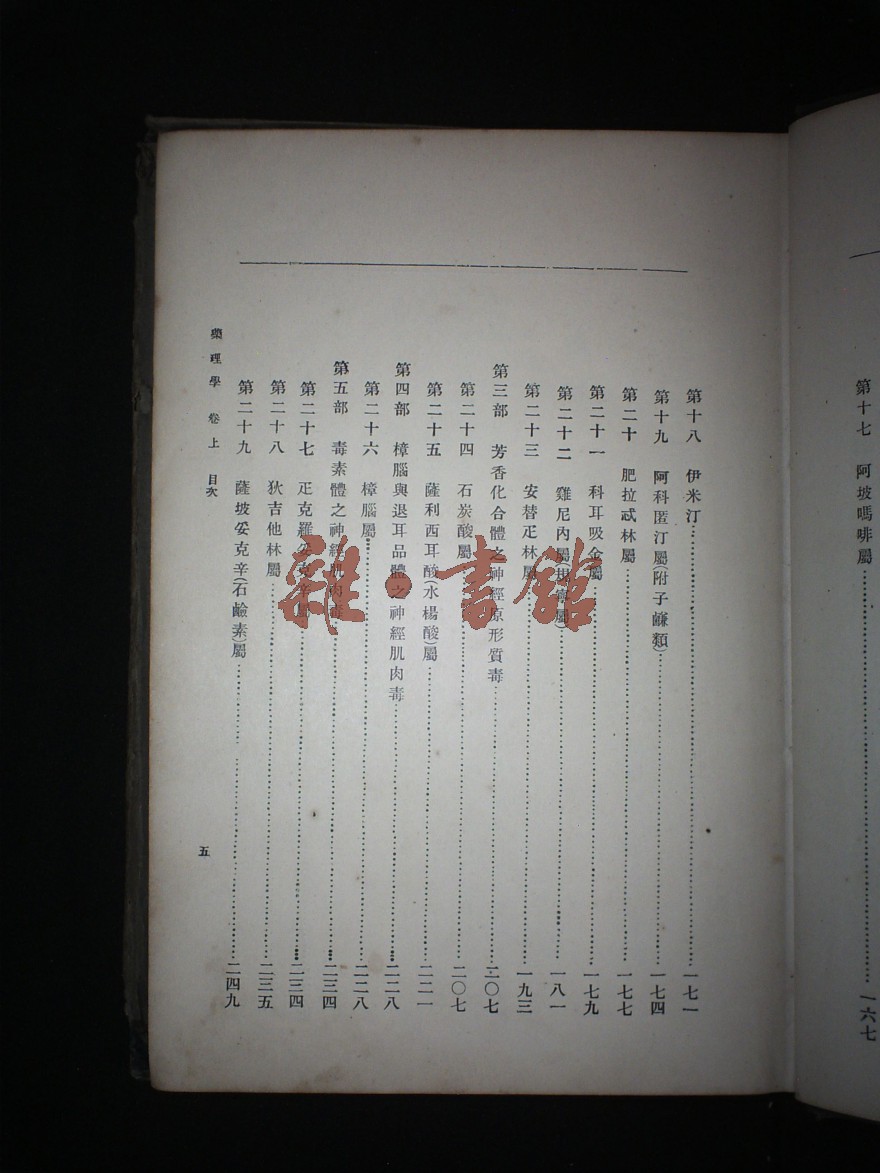 第十七　阿坡嗎啡屬……一六七
第十八　伊米汀……一七一
第十九　阿科匿汀屬(附子鹼類)……一七四
第二十　肥拉忒林屬……一七七
第二十一　科耳吸金屬……一七九
第二十二　雞尼內屬(規寧屬)……一八一
第二十三　安替疋林屬……一九三
第三部　芳香化合體之神經原形質毒……二〇七
第二十四　石炭酸屬……二〇七
第二十五　薩利西耳酸(水楊酸)屬……二二一
第四部　樟腦與退耳品體之神經肌肉毒……二二八
第二十六　樟腦屬……二二八
第五部　毒素體之神經肌肉毒……二三四
第二十七　疋克羅妥克辛屬……二三四
第二十八　狄吉他林屬……二三五
第二十九　薩坡妥克辛(石鹼素)屬……二四九
藥理學　卷上　目次
五
雜·書館